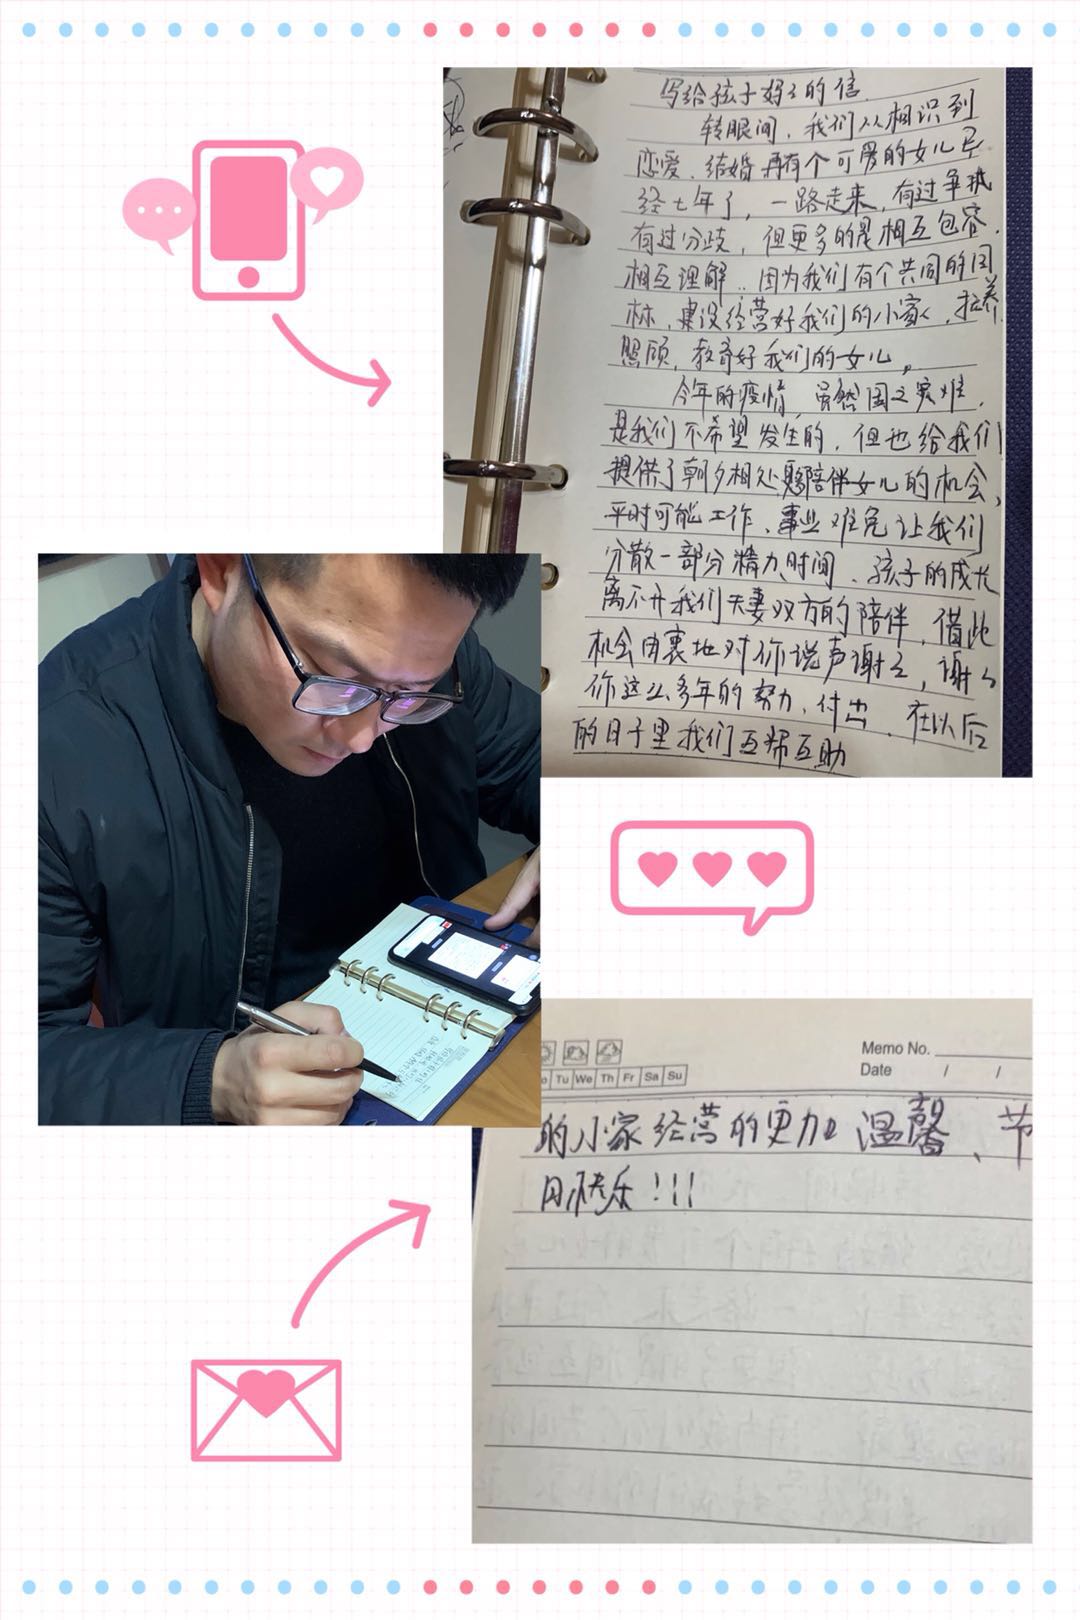 写给孩子妈妈的信
转眼间，我们从相识到
恋爱、结婚再有个可爱的女儿已
经七年了，一路走来，有过争执
有过分歧，但更多的是相互包容、
相互理解，因为我们有个共同的目
标，建设经营好我们的小家，抚养
照顾，教育好我们的女儿。
今年的疫情，虽然国之灾难，
是我们不希望发生的，但也给我们
提供了朝夕相处陪伴女儿的机会，
平时可能工作、事业难免让我们
分散一部分精力、时间、孩子的成长
离不开我们夫妻双方的陪伴，借此
机会由衷地对你说声谢谢，谢谢
你这么多年的努力、付出，在以后
的日子里我们互帮互助
Memo No.
Date / /
Tu We Th Fr Sa Su
的小家经营的更加温馨、节
日快乐！！！